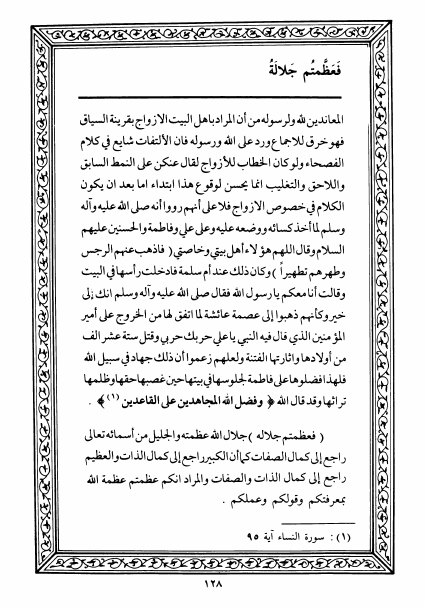 فَعَظَّمتُم جَلالَهُ
المعاندين لله ولرسوله من أن المراد باهل البيت الازواج بقرينة السياق
فهو خرق للاجماع ورد على الله ورسوله فان الألتفات شايع في كلام
الفصحاء ولو كان الخطاب للأزواج لقال عنكن على النمط السابق
واللاحق والتغليب انما يحسن لوقوع هذا ابتداء اما بعد ان يكون
الكلام في خصوص الازواج فلا على أنهم رووا أنه صلى الله عليه وآله
وسلم لما أخذ كسائه ووضعه عليه وعلى علي وفاطمة والحسنين عليهم
السلام وقال اللهم هؤلاء أهل بيتي وخاصتي ( فاذهب عنهم الرجس
وطهرهم تطهيراً ) وكان ذلك عند أم سلمة فادخلت رأسها في البيت
وقالت أنا معكم يا رسول الله فقال صلى الله عليه وآله وسلم انك إلى
خير وكأنهم ذهبوا إلى عصمة عائشة لما اتفق لها من الخروج على أمير
المؤمنين الذي قال فيه النبي يا علي حربك حربي وقتل ستة عشر الف
من أولادها واثارتها الفتنة ولعلهم زعموا أن ذلك جهاد في سبيل الله
فلهذا فضلوها على فاطمة لجلوسها في بيتها حين غصبها حقها وظلمها
تراثها وقد قال الله ﴿ وفضل الله المجاهدين على القاعدين (١) ﴾ .
( فعظمتم جلاله ) جلال الله عظمته والجليل من أسمائه تعالى
راجع إلى كمال الصفات كما أن الكبير راجع إلى كمال الذات والعظيم
راجع إلى كمال الذات والصفات والمراد انكم عظمتم عظمة الله
بمعرفتكم وقولكم وعملكم .
(١) : سورة النساء آية ٩٥
١٢٨